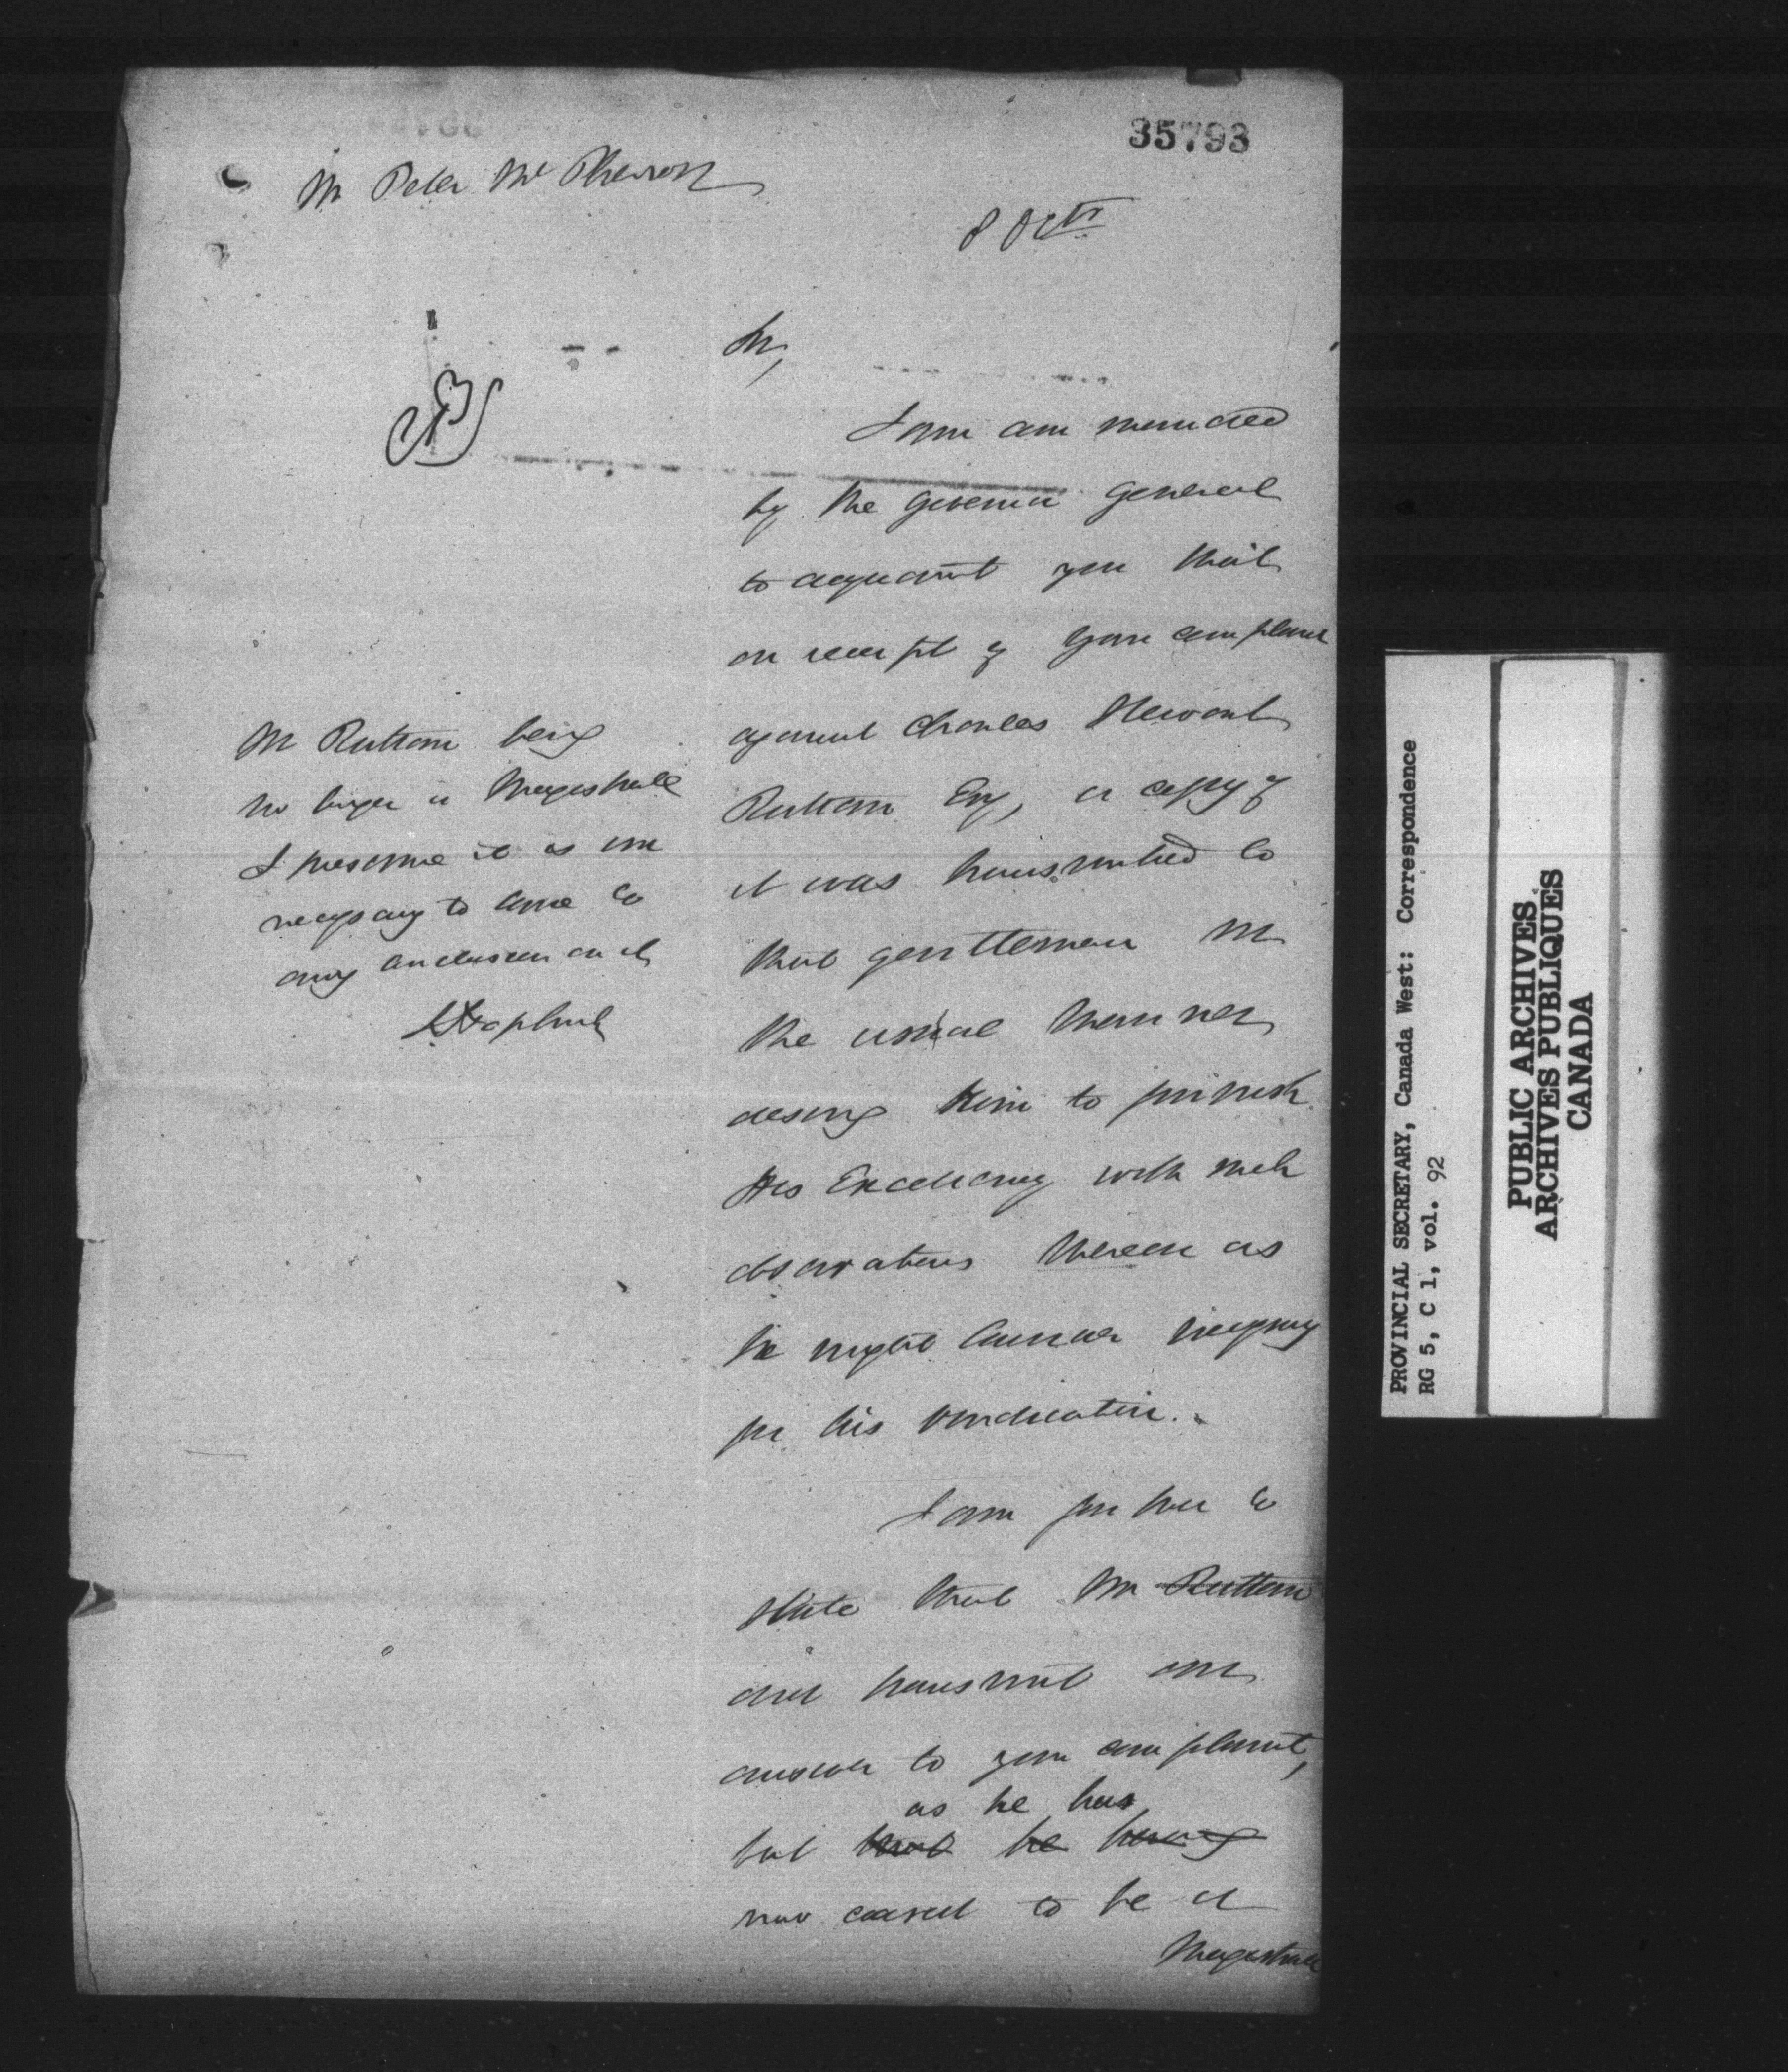 35793
Mr Peter McPherson
8 Octr
Sir,
I am commanded
by the Governor General
to acquaint you that
on receipt of your complaint
against Charles Stewart
Ruttan Esq, a copy of
it was transmitted to
that gentleman in
the usual manner
desiring him to furnish
His Excellency with such
observations thereon as
he might consider necessary
for his vindication.
I am further to
state that Mr Ruttan
did transmit an
answer to your complaint,
as he has
but that he having
now ceased to be a
Magistrate
Mr Ruttan being
no longer a Magistrate
I presume it is un
necessary to come to
any conclusion on it
PROVINCIAL SECRETARY, Canada West: Correspondence
RG 5, C 1, vol. 92
PUBLIC ARCHIVES
ARCHIVES PUBLIQUES
CANADA